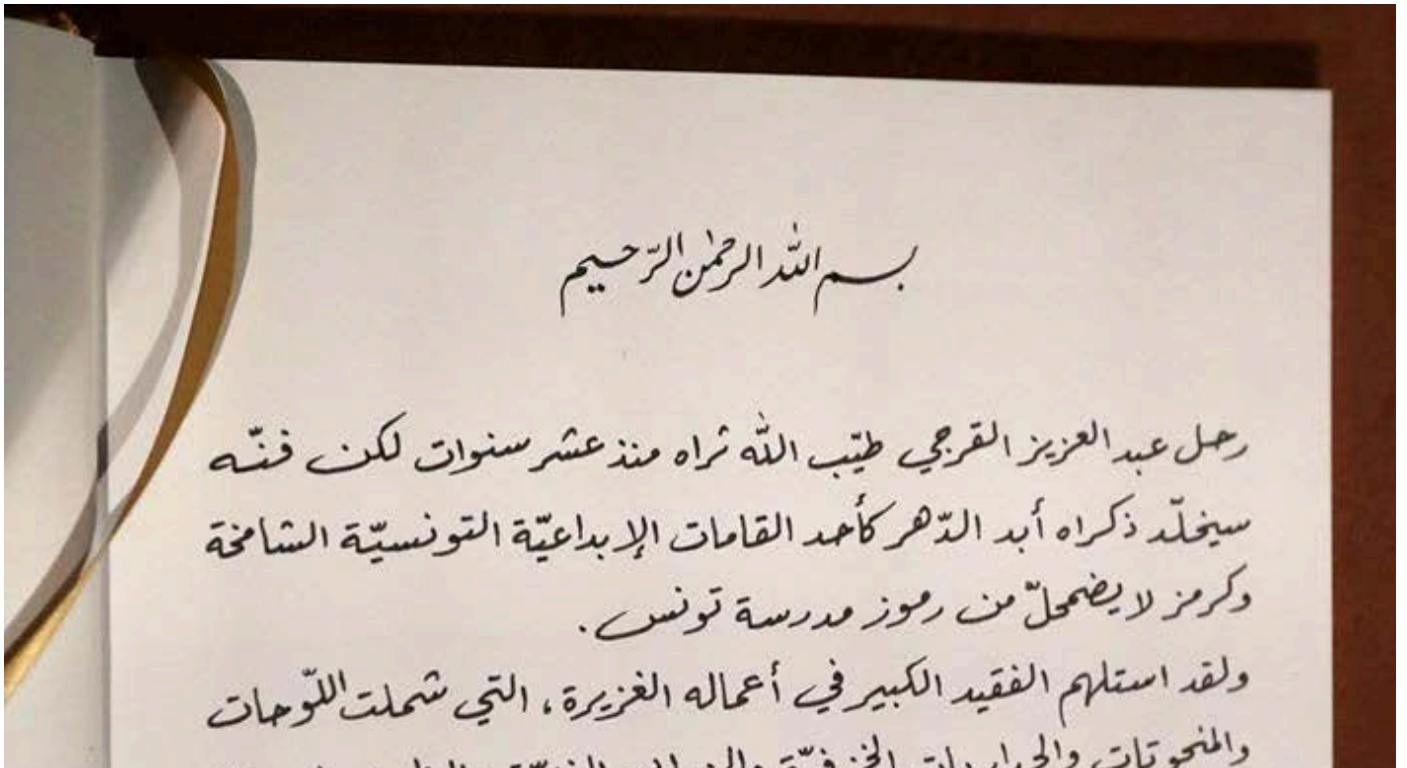 بسم الله الرحمن الرّحيم
رحل عبد العزيز القرجي طيّب الله ثراه منذ عشر سنوات لكن فنّه
سيخلّد ذكراه أبد الدّهر كأحد القامات الإبداعيّة التونسيّة الشامخة
وكرمز لا يضمحلّ من رموز مدرسة تونس.
ولقد استلهم الفقيد الكبير في أعماله الغزيرة، التي شملت اللّوحات
والمنحوتات والجداريات الخزفيّة